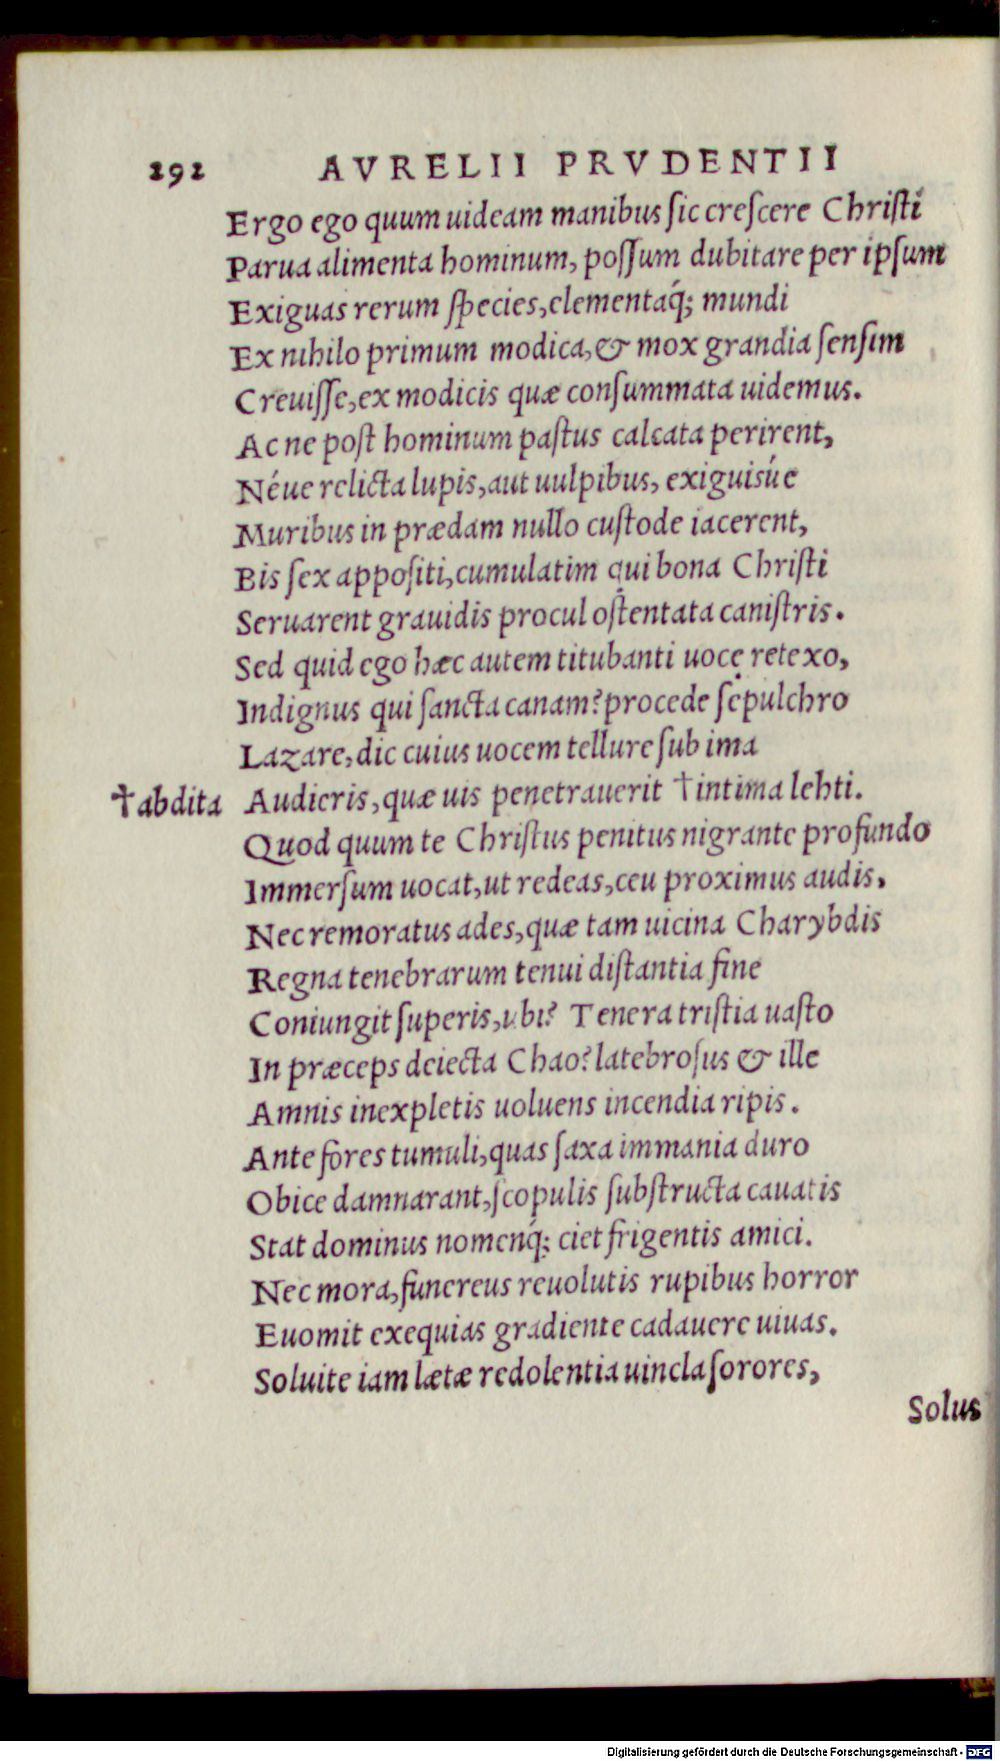 292 AVRELII PRVDENTII
Ergo ego quum uideam manibus ſic creſcere Chriſti
Parua alimenta hominum, poſſum dubitare per ipſum
Exiguas rerum ſpecies, elementaq́; mundi
Ex nihilo primum modica, & mox grandia ſenſim
Creuiſſe, ex modicis quæ conſummata uidemus.
Ac ne poſt hominum paſtus calcata perirent,
Néue relicta lupis, aut uulpibus, exiguisúe
Muribus in prædam nullo cuſtode iacerent,
Bis ſex appoſiti, cumulatim qui bona Chriſti
Seruarent grauidis procul oſtentata caniſtris.
Sed quid ego hæc autem titubanti uoce retexo,
Indignus qui ſancta canam? procede ſepulchro
Lazare, dic cuius uocem tellure ſub ima
†abdita Audieris, quæ uis penetrauerit †intima lehti.
Quod quum te Chriſtus penitus nigrante profundo
Immerſum uocat, ut redeas, ceu proximus audis,
Nec remoratus ades, quæ tam uicina Charybdis
Regna tenebrarum tenui diſtantia fine
Coniungit ſuperis, ubi? Tenera triſtia uaſto
In præceps deiecta Chao? latebroſus & ille
Amnis inexpletis uoluens incendia ripis.
Ante fores tumuli, quas ſaxa immania duro
Obice damnarant, ſcopulis ſubſtructa cauatis
Stat dominus nomenq́; ciet frigentis amici.
Nec mora, funereus reuolutis rupibus horror
Euomit exequias gradiente cadauere uiuas.
Soluite iam lætæ redolentia uincla ſorores,
Solus
Digitalisierung gefördert durch die Deutsche Forschungsgemeinschaft - DFG